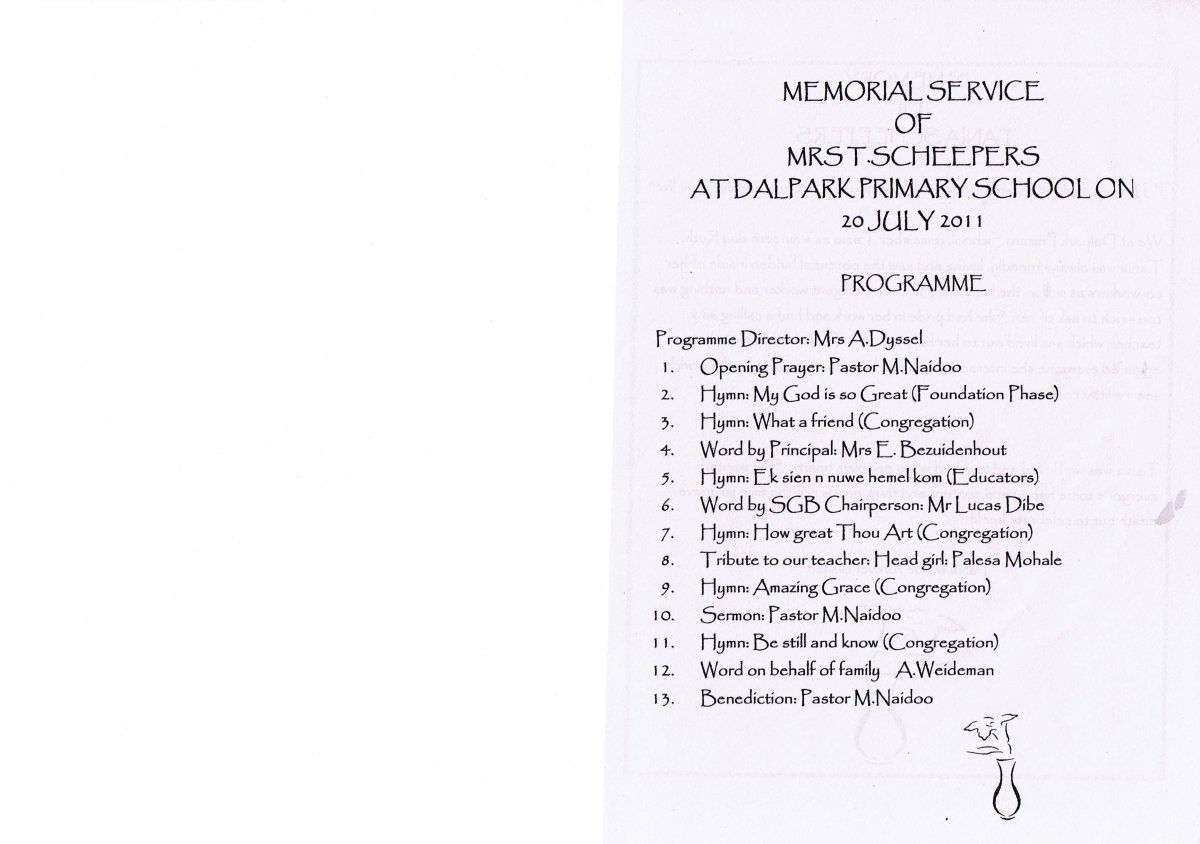 MEMORIAL SERVICE
OF
MRS T.SCHEEPERS
AT DALPARK PRIMARY SCHOOL ON
20 JULY 2011
PROGRAMME
Programme Director: Mrs A.Dyssel
1. Opening Prayer: Pastor M.Naidoo
2. Hymn: My God is so Great (Foundation Phase)
3. Hymn: What a friend (Congregation)
4. Word by Principal: Mrs E. Bezuidenhout
5. Hymn: Ek sien n nuwe hemel kom (Educators)
6. Word by SGB Chairperson: Mr Lucas Dibe
7. Hymn: How great Thou Art (Congregation)
8. Tribute to our teacher: Head girl: Palesa Mohale
9. Hymn: Amazing Grace (Congregation)
10. Sermon: Pastor M.Naidoo
11. Hymn: Be still and know (Congregation)
12. Word on behalf of family A.Weideman
13. Benediction: Pastor M.Naidoo